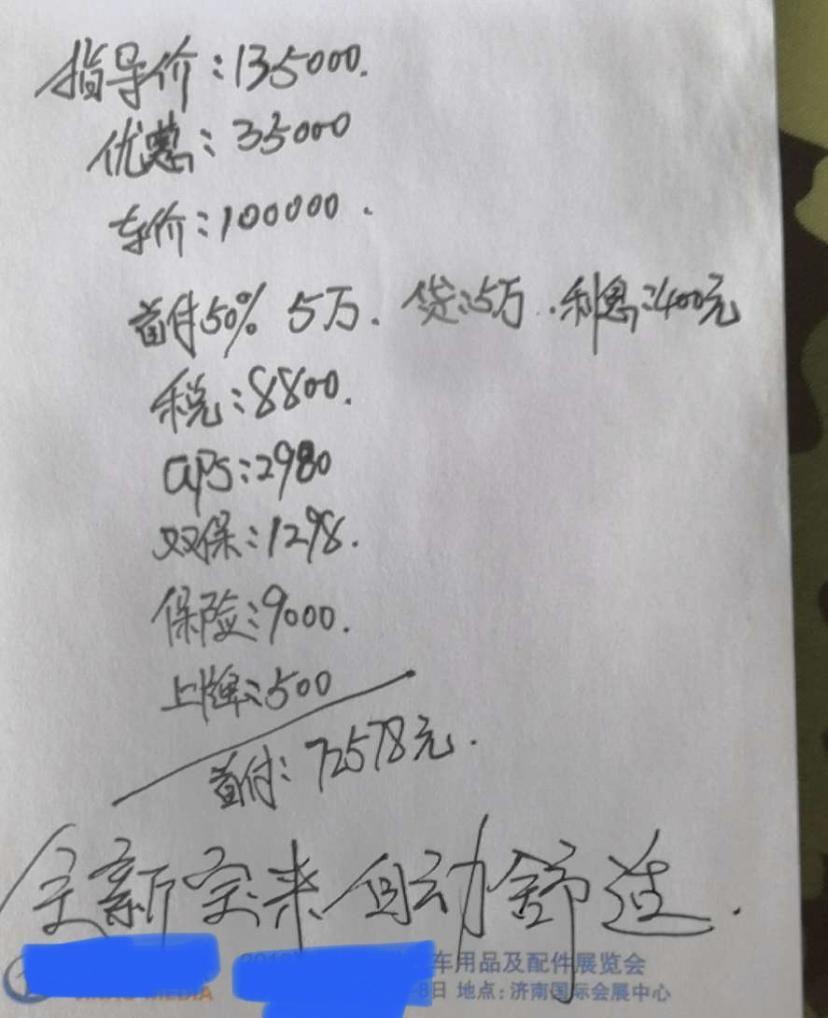 指导价:135000.
优惠:35000
车价:100000.
首付50% 5万. 贷:5万.利息:2400元
税:8800.
GPS:2980
双保:1298.
保险:9000.
上牌:500
首付:72578元.
全新宝来自动舒适.
车用品及配件展览会
8日 地点:济南国际会展中心